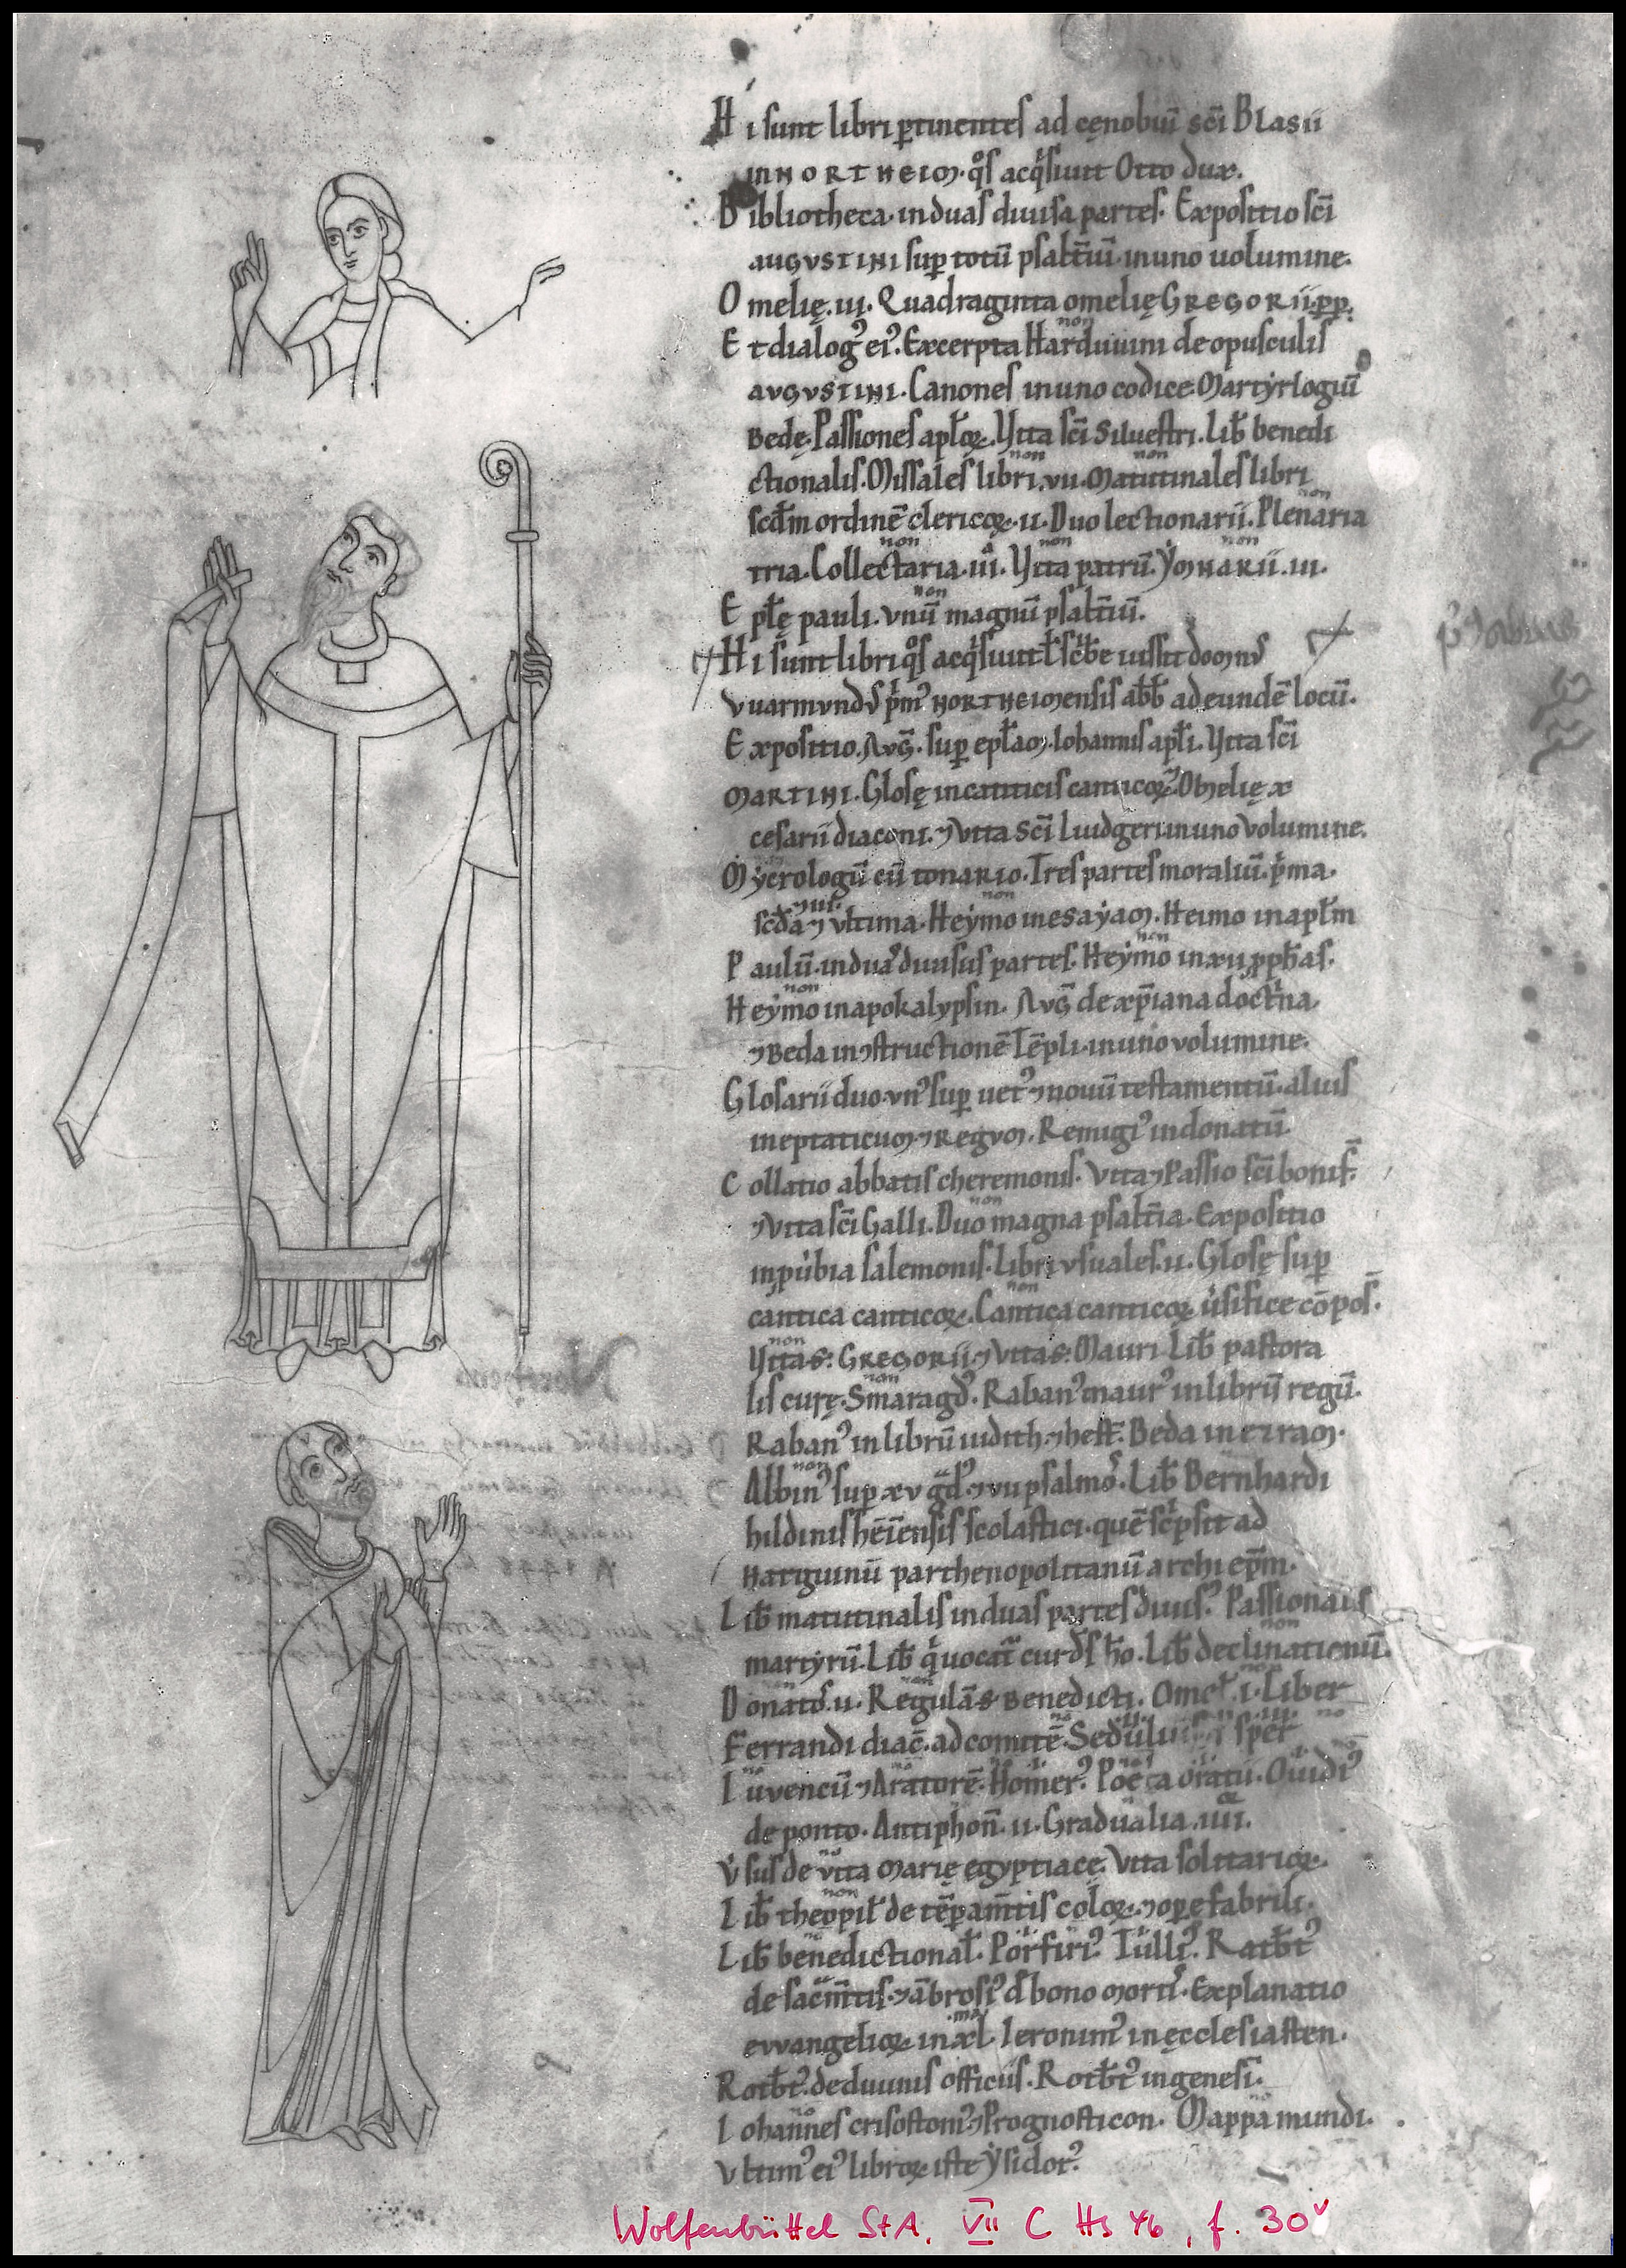 Hi sunt libri ꝑtinentes ad cęnobiū sc̄i Blasii
in NORTHEIM. qͦs acqͥsiuit Otto dux.
Bibliotheca. in duas diuisa partes. Expositio sc̄i
AUGVSTINI suꝑ totū psalt̄iū. in uno uolumine.
Omelię. iii. Quadraginta omelię GREGORII. pp.
non
Et dialogꝰ eiꝰ. Excerpta Harduuini de opusculis
AVGVSTINI. Canones in uno codice. Martyrlogiū
Bedę. Passiones apl̄oꝝ. Vita sc̄i Siluestri. Lib̄ benedi
non non
ctionalis. Missales libri. vii. Matutinales libri
non
scd̄m ordinē clericoꝝ. ii. Duo lectionarii. Plenaria
non non non
tria. Collectaria. iiiͣ. Vita patrū. YMNARII. iii.
non
Epl̄ę pauli. vnū magnū psalt̄iū.
Hi sunt libri qͦs acqͥsiuit ł sc̄be iussit domnꝰ
VuarmVndꝰ pͥmꝰ NORTHEIMensis abb̄ ad eundē locū.
Expositio. AVḠ. suꝑ epl̄am. Iohannis apl̄i. Vita sc̄i
MARTINI. Glosę in canticis canticoꝝ. Omelię ex
cesarii diaconi. ⁊ vita Sc̄i Luidgeri in uno volumine.
Mycrologū cū tonario. Tres partes moraliū. pͥma.
non
scd̄a ⁊ vltima. Heymo in esayam. Heimo in apl̄m
non
Paulū. in duaꝰ diuisus partes. Heymo in xii ꝓph̄as.
non
Heymo in apokalypsin. AVḠ de xp̄iana doctͥna.
⁊ Beda in ⁊structionē Tēpli. in uno volumine.
Glosarii duo. vnꝰ suꝑ uetꝰ ⁊ nouū testamentū. aliuis
in eptaticum ⁊ REGVM. Remigiꝰ in donatū.
Collatio abbatis cheremonis. Vita ⁊ Passio sc̄i bonif̄.
non
⁊ vita sc̄i Galli. Duo magna psalt̄ia. Expositio
in ꝓuͥbia salemonis. Libri vsuales. ii. Glosę suꝑ
non
cantica canticoꝝ. Cantica canticoꝝ uͥsifice cōpos̄.
non
Vita s: GREGORII ⁊ vita s: Mauri. Lib̄ pastora
non
lis curę. Smaragdꝰ. Rabanꝰ maurꝰ in librū regū.
Rabanꝰ in librū iudith ⁊ hest̄. Beda in ezram.
non
Albinꝰ suꝑ xv gͣdꝰ ⁊ vii psalmoꝰ. Lib̄ Bernhardi
hildinisheīensis scolastici. quē scͥpsit ad
Hartguinū parthenopolitanū archiep̄m.
Lib̄ matutinalis in duas partes diuisꝰ. Passionalis
non
martyrū. Lib̄ qͥ uocat̄ cur dꝰ hͦo. Lib̄ declinationū.
Donatꝰ. ii. Regulā s Benedicti. Omel̄. i. Liber
Ferrandi diac̄. ad comitē. Seduluis
Iuvencū ⁊ Aratorē. Homerꝰ. Poetͣ a oratii. Ouidiꝰ
de ponto. Antiphon̄. ii. Gradualia. iiiiͦʳ.
Vͥsus de vita Marię egyptiacę. Vita solitarioꝝ.
non
Lib̄ theopil̄ de tēꝑam̄tis coloꝝ. ⁊ oꝑe fabrili.
Lib̄ benedictional̄. Porfiriꝰ. Tulliꝰ. Rotb̄tꝰ
de sacͣm̄tis. ⁊ ābrosiꝰ d̄ bono mortͥs. Explanatio
ewangelioꝝ in xl.ma Ieronimꝰ in ęcclesiasten.
Rotb̄tꝰ. de diuinis officiis. Rotb̄tꝰ in genesi.
no
Iohannes crisostomꝰ. ⁊ Prognosticon. Mappa mundi.
Vltimꝰ eiꝰ libroꝝ iste Ysidorꝰ.
Wolfenbüttel StA, VII C Hs 46, f. 30v